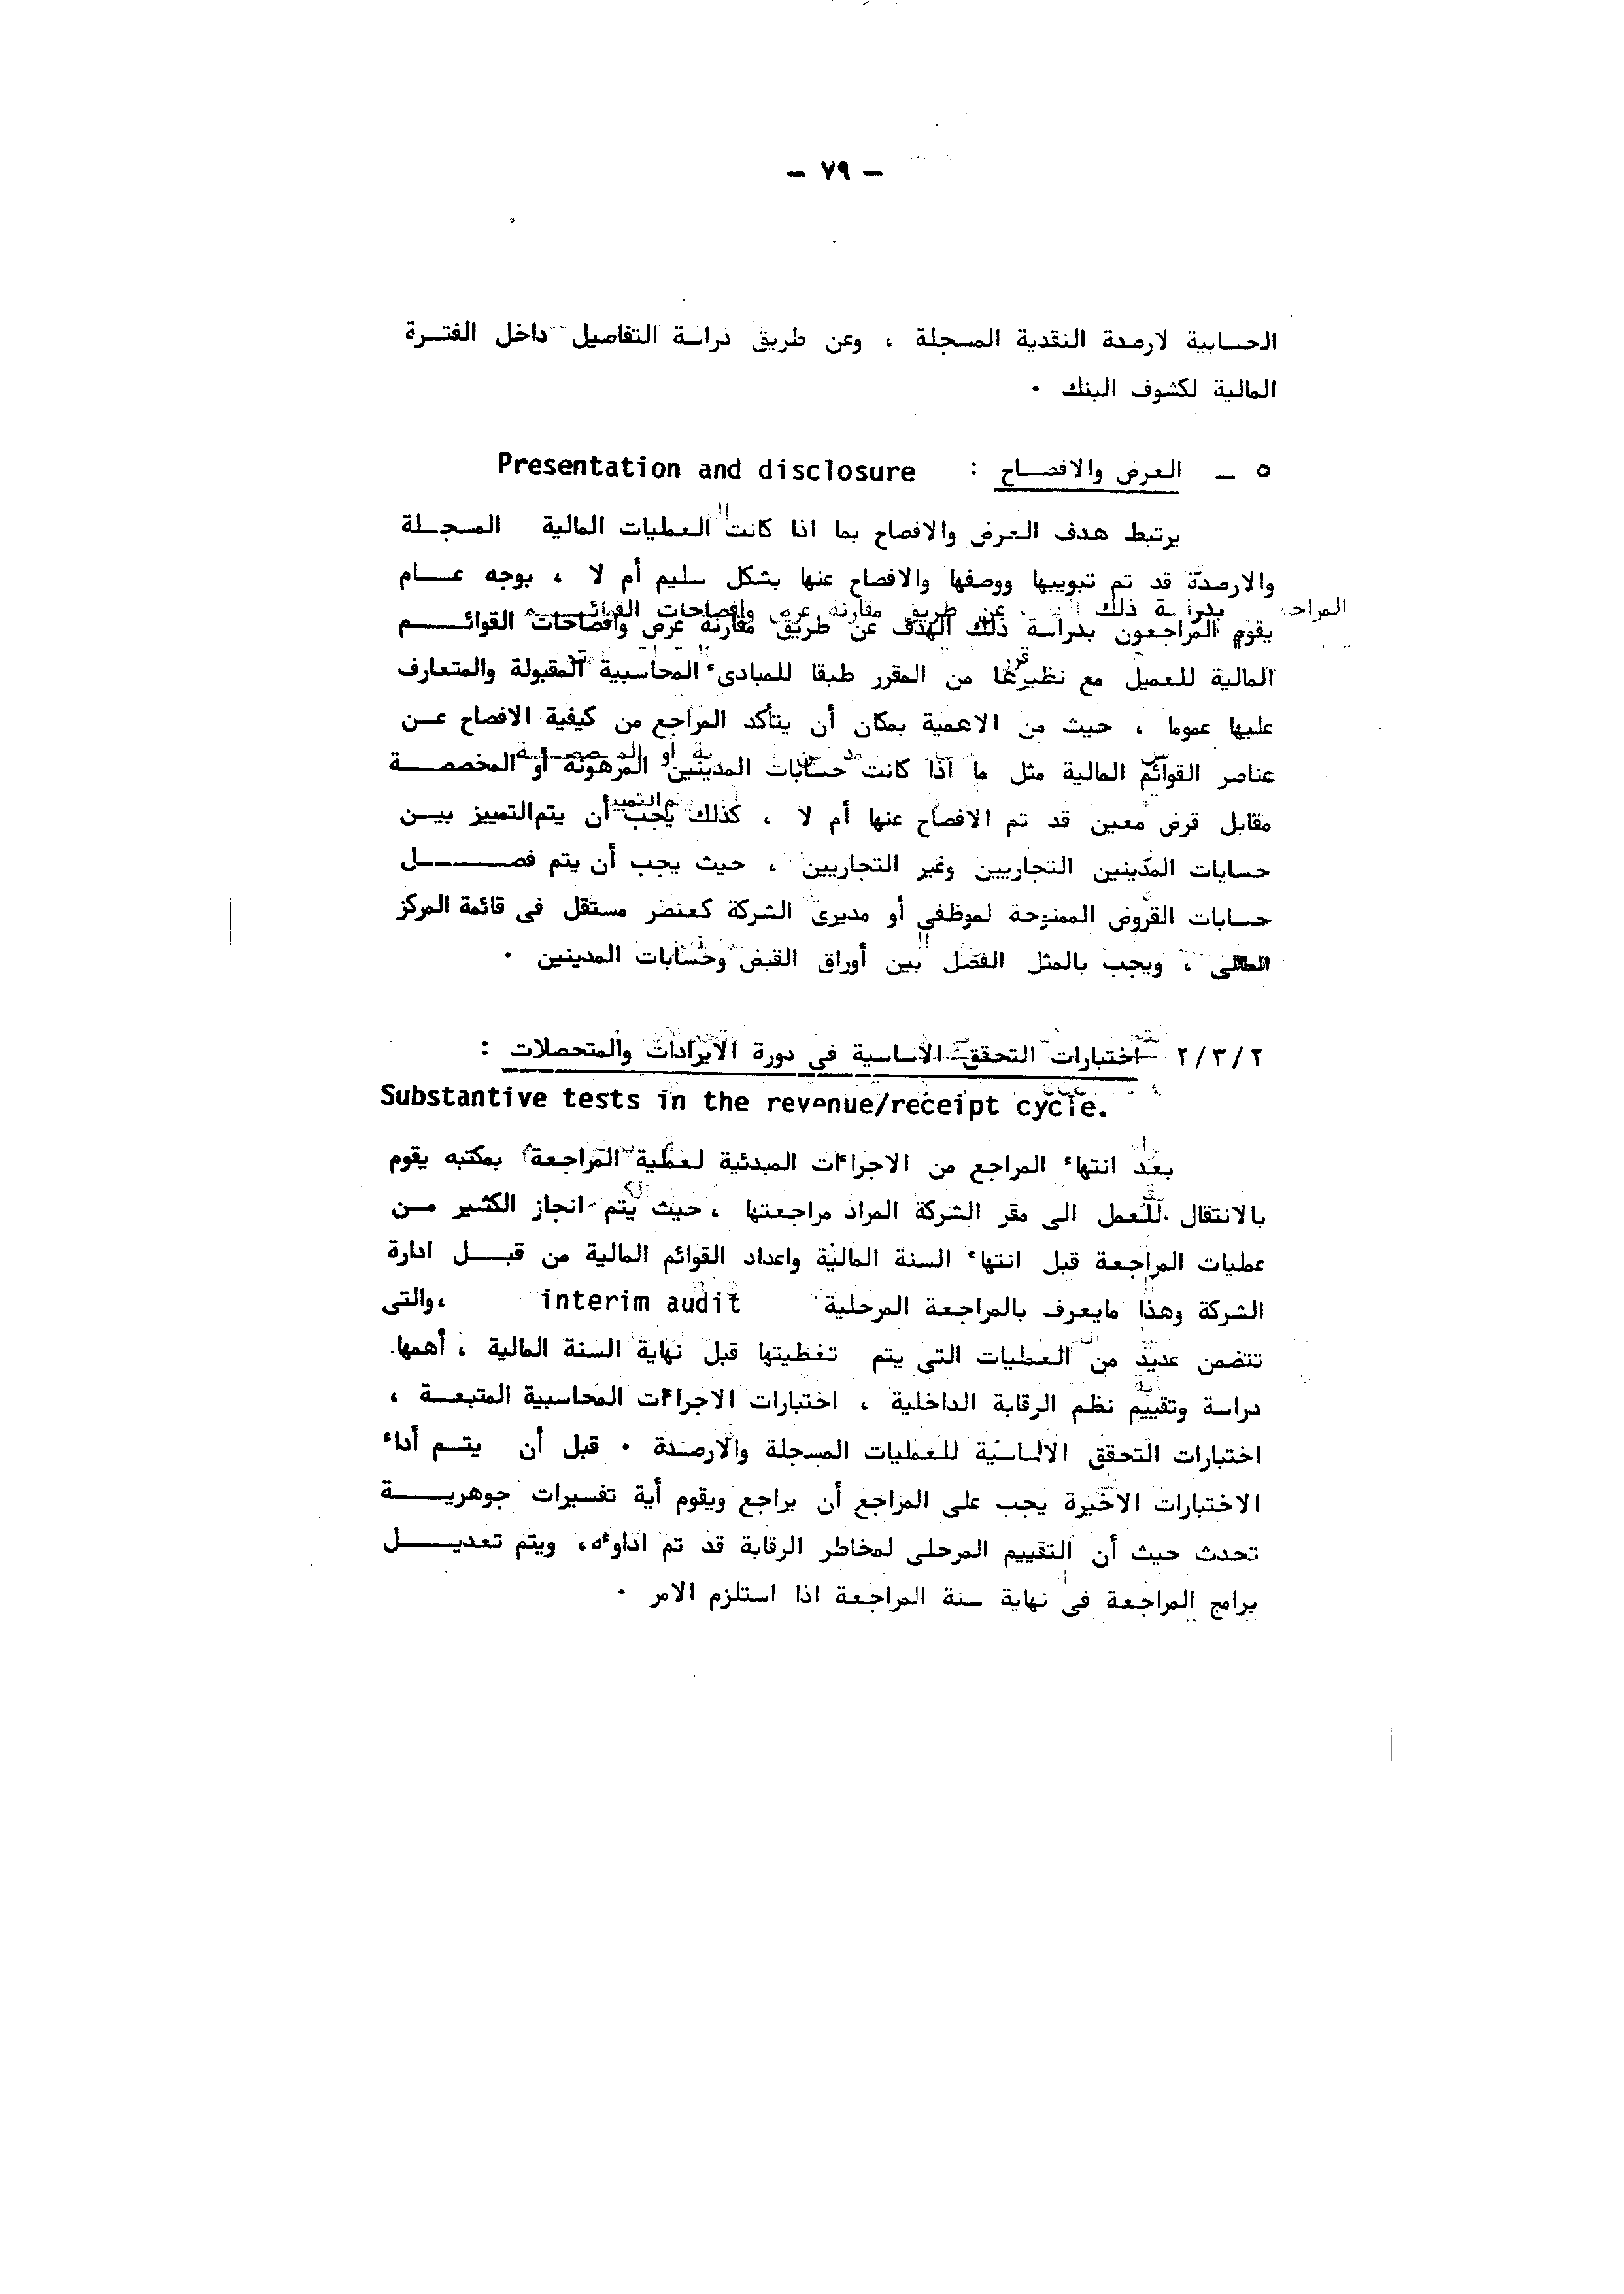 — ٧٩ —
الحسابية لارصدة النقدية المسجلة ، وعن طريق دراسة التفاصيل داخل الفتـــرة
المالية لكشوف البنك ٠
٥ ـ العرض والافصــاح : Presentation and disclosure
يرتبط هدف العرض والافصاح بما اذا كانت العمليات المالية المسجــلة
والارصدة قد تم تبويبها ووصفها والافصاح عنها بشكل سليم أم لا ، بوجه عـــام
يقوم المراجعون بدراسة ذلك الهدف عن طريق مقارنة عرض وافصاحات القوائـــم
المالية للعميل مع نظيرها من المقرر طبقا للمبادىء المحاسبية المقبولة والمتعارف
عليها عموما ، حيث من الاهمية بمكان أن يتأكد المراجع من كيفية الافصاح عـــن
عناصر القوائم المالية مثل ما اذا كانت حسابات المدينين المرهونة أو المخصصـــة
مقابل قرض معين قد تم الافصاح عنها أم لا ، كذلك يجب أن يتم التمييز بيـــن
حسابات المدينين التجاريين وغير التجاريين ، حيث يجب أن يتم فصـــــل
حسابات القروض الممنوحة لموظفي أو مديرى الشركة كعنصر مستقل فى قائمة المركز
المالى ، ويجب بالمثل الفصل بين أوراق القبض وحسابات المدينين ٠
٢/٣/٢ اختبارات التحقق الاساسية فى دورة الايرادات والمتحصلات :
Substantive tests in the revenue/receipt cycle.
بعد انتهاء المراجع من الاجراءات المبدئية لعملية المراجعة بمكتبه يقوم
بالانتقال للعمل الى مقر الشركة المراد مراجعتها ، حيث يتم انجاز الكثير مــن
عمليات المراجعة قبل انتهاء السنة المالية واعداد القوائم المالية من قبـــل ادارة
الشركة وهذا مايعرف بالمراجعة المرحلية interim audit ،والتى
تتضمن عديد من العمليات التى يتم تغطيتها قبل نهاية السنة المالية ، أهمها
دراسة وتقييم نظم الرقابة الداخلية ، اختبارات الاجراءات المحاسبية المتبعـــة ،
اختبارات التحقق الاساسية للعمليات المسجلة والارصدة ٠ قبل أن يتــم أداء
الاختبارات الاخيرة يجب على المراجع أن يراجع ويقوم أية تفسيرات جوهريـــــة
تحدث حيث أن التقييم المرحلى لمخاطر الرقابة قد تم اداوءه، ويتم تعديـــــل
برامج المراجعة فى نهاية سنة المراجعة اذا استلزم الامر ٠